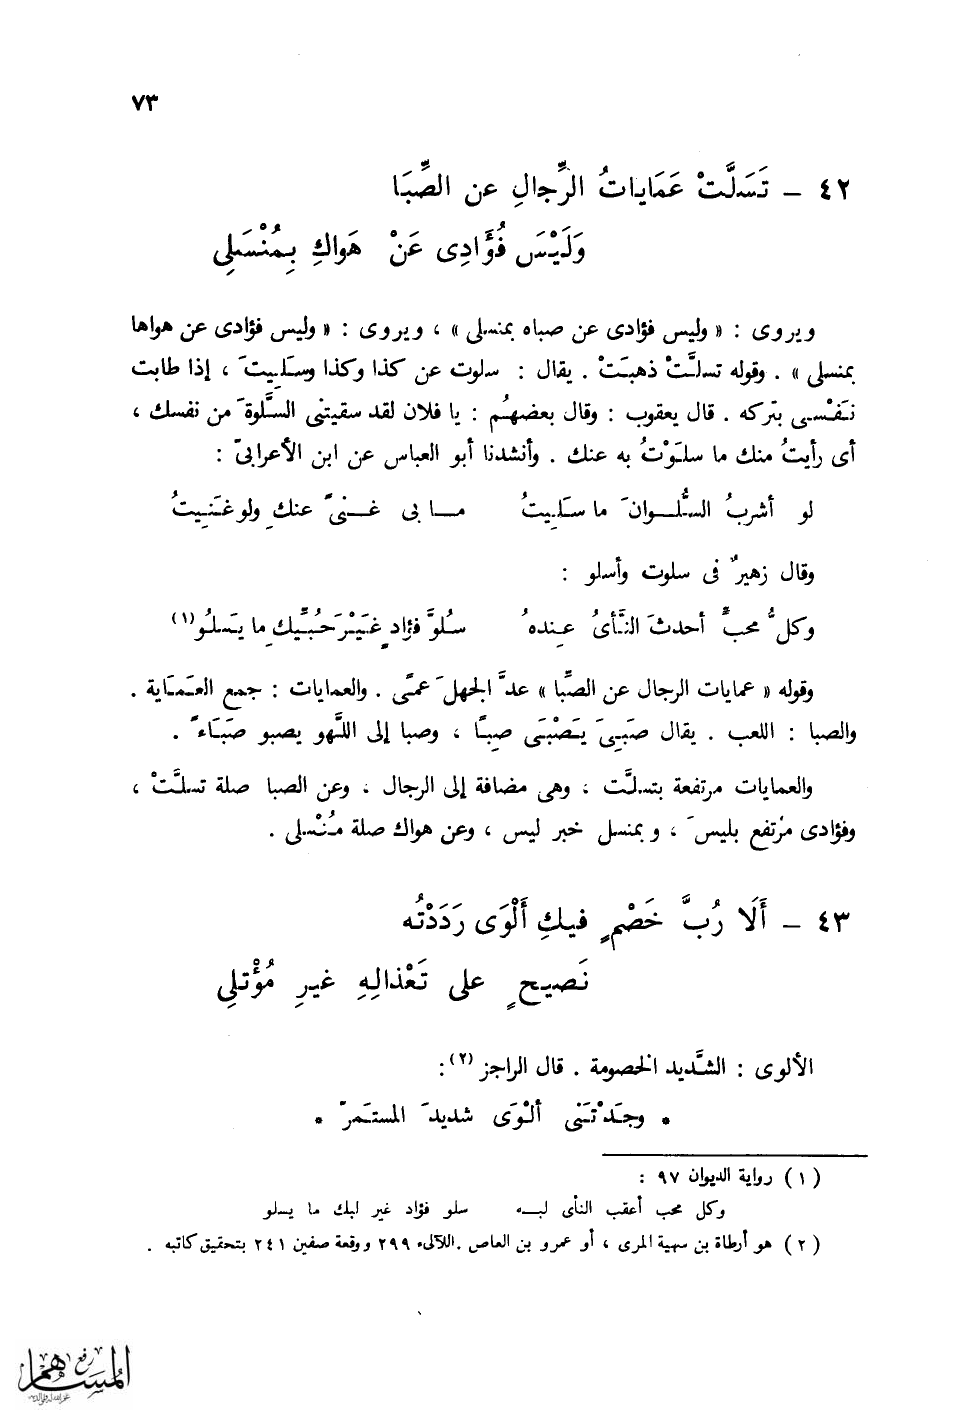 ٧٣
٤٢ – تَسَلَّتْ عَمَاياتُ الرِّجالِ عن الصِّبَا
وَلَيْسَ فُؤَادِى عَنْ هَواكِ بِمُنْسَلِى
ويروى : « وليس فؤادى عن صباه بمنسلى » ، ويروى : « وليس فؤادى عن هواها
بمنسلى » . وقوله تسلَّتْ ذهبَتْ . يقال : سلوت عن كذا وكذا وسَلِيتَ ، إذا طابت
نَفْسى بتركه . قال يعقوب : وقال بعضهُم : يا فلان لقد سقيتنى السَّلوةَ من نفسك ،
أى رأيتُ منك ما سلَوْتُ به عنك . وأنشدنا أبو العباس عن ابن الأعرابىّ :
لو أشربُ السُّلوانَ ما سَلِيتُ مابى غنىً عنكِ ولو غَنِيتُ
وقال زهيرٌ فى سلوت وأسلو :
وكلُّ محبٍّ أحدثَ النَّأىُ عِندهُ سُلوَّ فؤادٍ غَيْرَ حُبِّيكِ ما يَسلُو (١)
وقوله « عمايات الرجال عن الصِّبا » عدَّ الجهلَ عمًى . والعمايات : جمع العَمَاية .
والصبا : اللعب . يقال صَبِىَ يَصْبَى صِبًا ، وصبا إلى اللَّهو يصبو صَبَاءً .
والعمايات مرتفعة بتسلَّت ، وهى مضافة إلى الرجال ، وعن الصبا صلة تسلَّتْ ،
وفؤادى مرْتفع بليسَ ، وبمنسل خبر ليس ، وعن هواك صلة مُنْسلى .
٤٣ – أَلَا رُبَّ خَصْمٍ فيكِ أَلْوَى رَدَدْتُه
نَصيحٍ على تَعْذالِهِ غيرِ مُؤْتلِى
الألوى : الشَّديد الخصومة . قال الراجز (٢) :
* وجَدْتَنى ألْوَى شديدَ المستَمرّ *
(١) رواية الديوان ٩٧ :
وكل محب أعقب النأى لبه سلو فؤاد غير لبك ما يسلو
(٢) هو أرطاة بن سهية المرى ، أو عمرو بن العاص . اللآلىء ٢٩٩ ووقعة صفين ٢٤١ بتحقيق كاتبه .